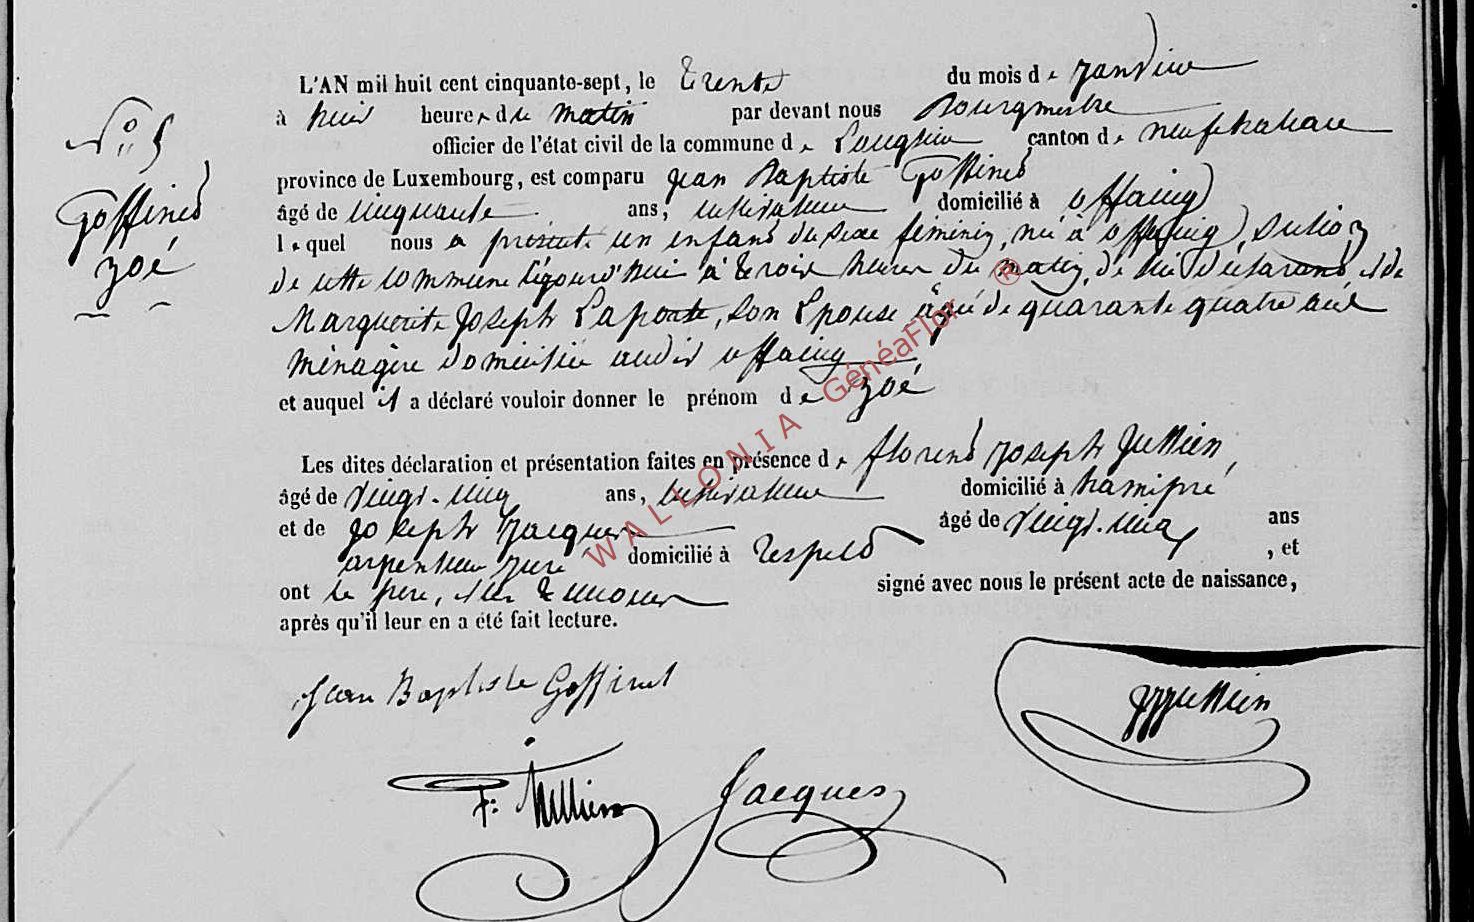 L'AN mil huit cent cinquante-sept, le trente du mois de Janvier
à huit heures du matin par devant nous Bourgmestre
officier de l'état civil de la commune de canton de neufchateau
N° 5
province de Luxembourg, est comparu Jean Baptiste Goffinet
Goffinet
Zoé
âgé de cinquante ans, cultivateur domicilié à offaing
lequel nous a presenté un enfant du sexe féminin, né à offaing, section
de cette commune aujourd'hui à trois heures du matin, de lui déclarant et de
Marguerite Joseph Laporte, son Epouse agée de quarante quatre ans
ménagère domiciliée audit offaing
et auquel il a déclaré vouloir donner le prénom de Zoé
Les dites déclaration et présentation faites en présence de florent Joseph
âgé de vingt-cinq ans, cultivateur domicilié à hamipré
et de Joseph Jacques âgé de vingt-cinq ans
arpenteur juré domicilié à Respelt , et
ont le père, et les temoins signé avec nous le présent acte de naissance,
après qu'il leur en a été fait lecture.
Jean Baptiste Goffinet
Jacques
WALLONIA GénéaFlor ®